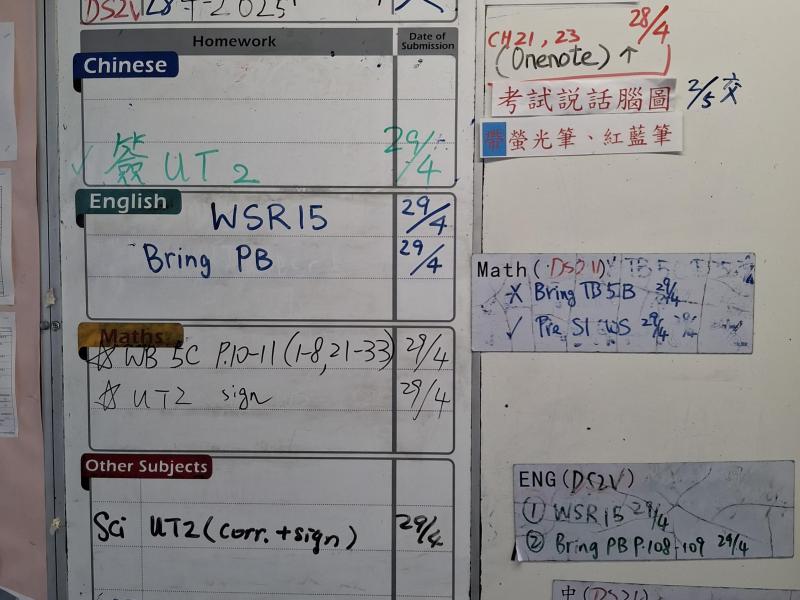 DS2V 28-4-2025
Homework
Date of Submission
Chinese
✓ 簽 UT 2 29/4
English
WSR15 29/4
Bring PB 29/4
Maths
☆ WB 5C P.10-11 (1-8, 21-33) 29/4
☆ UT2 sign 29/4
Other Subjects
Sci UT2 (corr. + sign) 29/4
28/4
CH21, 23
(Onenote) ↑
考試說話腦圖 2/5 交
帶螢光筆、紅藍筆
Math (DS2 )
Bring TB 5B 29/4
✓ Pre S1 WS 29/4
ENG (DS2V)
① WSR15 29/4
② Bring PB P.108-109 29/4
中 (DS21)